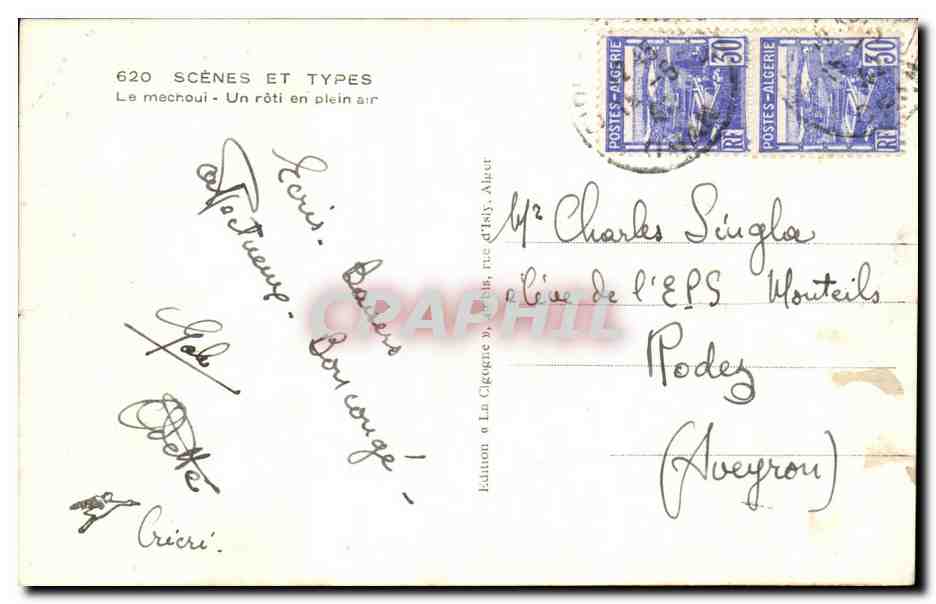 620 SCÈNES ET TYPES
Le mechoui - Un rôti en plein air
Ecris - Baisers
affectueux - Bon congé -
Odette
Cricri.
Edition « La Cigogne », rue d'Isly, Alger
POSTES-ALGERIE
30
RF
POSTES-ALGERIE
30
RF
Mr Charles Singla
élève de l'EPS Monteils
Rodez
(Aveyron)
CRAPHIL